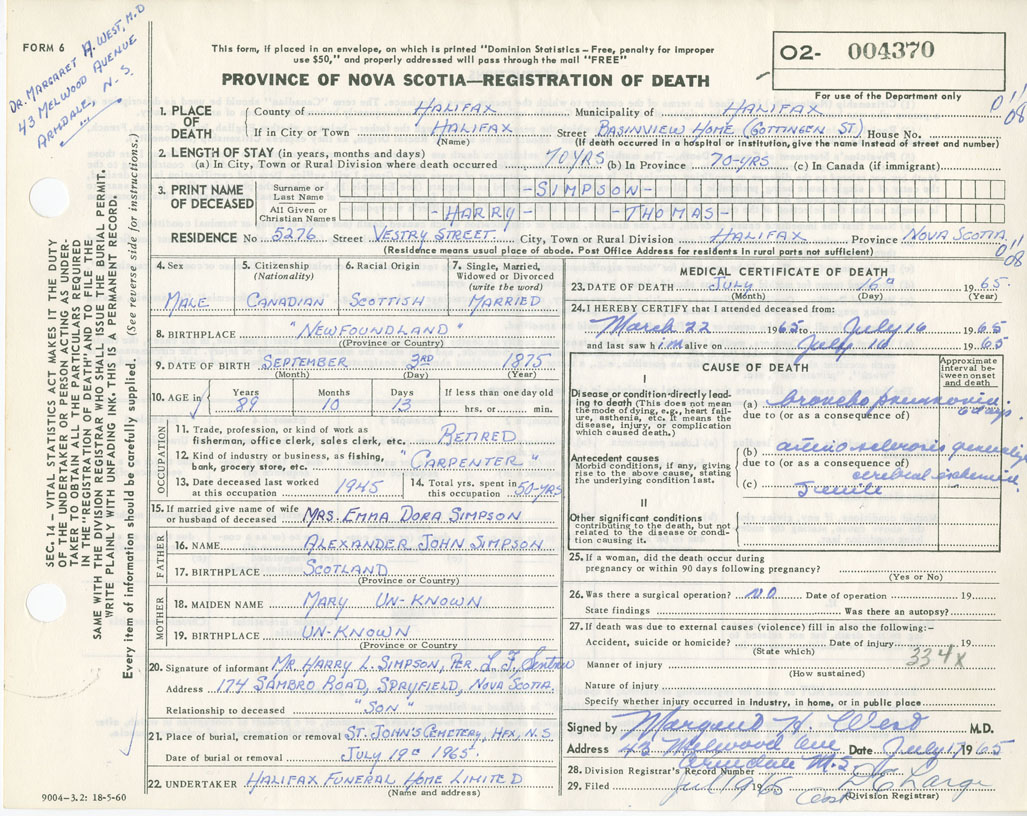 FORM 6
DR. MARGARET A. WEST, M.D
43 MELWOOD AVENUE
ARMDALE, N-S.
This form, if placed in an envelope, on which is printed "Dominion Statistics – Free, penalty for improper
use $50," and properly addressed will pass through the mail "FREE"
PROVINCE OF NOVA SCOTIA—REGISTRATION OF DEATH
O2- 004370
For use of the Department only
1. PLACE OF DEATH
County of HALIFAX Municipality of HALIFAX
If in City or Town HALIFAX Street BASINVIEW HOME (GOTTINGEN ST) House No.
(Name) (If death occurred in a hospital or institution, give the name instead of street and number)
2. LENGTH OF STAY (in years, months and days)
(a) In City, Town or Rural Division where death occurred 70 YRS (b) In Province 70-YRS (c) In Canada (if immigrant)
3. PRINT NAME OF DECEASED
Surname or Last Name -SIMPSON-
All Given or Christian Names -HARRY- -THOMAS-
RESIDENCE No 5276 Street VESTRY STREET. City, Town or Rural Division HALIFAX Province NOVA SCOTIA
(Residence means usual place of abode. Post Office Address for residents in rural parts not sufficient)
011
08
011
08
4. Sex MALE
5. Citizenship (Nationality) CANADIAN
6. Racial Origin SCOTTISH
7. Single, Married, Widowed or Divorced (write the word) MARRIED
8. BIRTHPLACE "NEWFOUNDLAND"
(Province or Country)
9. DATE OF BIRTH SEPTEMBER 3RD 1875
(Month) (Day) (Year)
10. AGE in Years 89 Months 10 Days 13 If less than one day old hrs. or min.
OCCUPATION
11. Trade, profession, or kind of work as fisherman, office clerk, sales clerk, etc. RETIRED
12. Kind of industry or business, as fishing, bank, grocery store, etc. "CARPENTER"
13. Date deceased last worked at this occupation 1945
14. Total yrs. spent in this occupation 50-YRS
15. If married give name of wife or husband of deceased MRS. EMMA DORA SIMPSON
FATHER
16. NAME ALEXANDER JOHN SIMPSON
17. BIRTHPLACE SCOTLAND
(Province or Country)
MOTHER
18. MAIDEN NAME MARY UN-KNOWN
19. BIRTHPLACE UN-KNOWN
(Province or Country
20. Signature of informant MR HARRY L. SIMPSON, PER.
Address 174 SAMBRO ROAD, SPRYFIELD, NOVA SCOTIA.
Relationship to deceased "SON"
21. Place of burial, cremation or removal ST. JOHN'S CEMETERY, HFX, N.S
Date of burial or removal JULY 19 1965
22. UNDERTAKER HALIFAX FUNERAL HOME LIMITED
(Name and address)
9004-3.2: 18-5-60
MEDICAL CERTIFICATE OF DEATH
23. DATE OF DEATH July 16 1965.
(Month) (Day) (Year)
24. I HEREBY CERTIFY that I attended deceased from:
March 22 1965 to July 16 1965
and last saw him alive on July 16 1965
CAUSE OF DEATH
Approximate interval between onset and death
I
Disease or condition directly leading to death (This does not mean the mode of dying, e.g., heart failure, asthenia, etc. It means the disease, injury, or complication which caused death.)
(a) broncho pneumonia
due to (or as a consequence of)
Antecedent causes
Morbid conditions, if any, giving rise to the above cause, stating the underlying condition last.
(b) arteriosclerosis
due to (or as a consequence of)
cerebral
(c) Senile
II
Other significant conditions contributing to the death, but not related to the disease or condition causing it.
25. If a woman, did the death occur during pregnancy or within 90 days following pregnancy?
(Yes or No)
26. Was there a surgical operation? no Date of operation 19
State findings Was there an autopsy?
27. If death was due to external causes (violence) fill in also the following:–
Accident, suicide or homicide? Date of injury 19
(State which)
334X
Manner of injury
(How sustained)
Nature of injury
Specify whether injury occurred in industry, in home, or in public place
Signed by Margaret A. West M.D.
Address 43 Melwood Ave Date July 17, 1965
Armdale N.S
28. Division Registrar's Record Number
29. Filed Jul 19 1965
(Division Registrar)
SEC. 14 – VITAL STATISTICS ACT MAKES IT THE DUTY
OF THE UNDERTAKER OR PERSON ACTING AS UNDER-
TAKER TO OBTAIN ALL THE PARTICULARS REQUIRED
IN THE "REGISTRATION OF DEATH" AND TO FILE THE
SAME WITH THE DIVISION REGISTRAR WHO SHALL ISSUE THE BURIAL PERMIT.
WRITE PLAINLY WITH UNFADING INK. THIS IS A PERMANENT RECORD.
Every item of information should be carefully supplied. (See reverse side for instructions.)